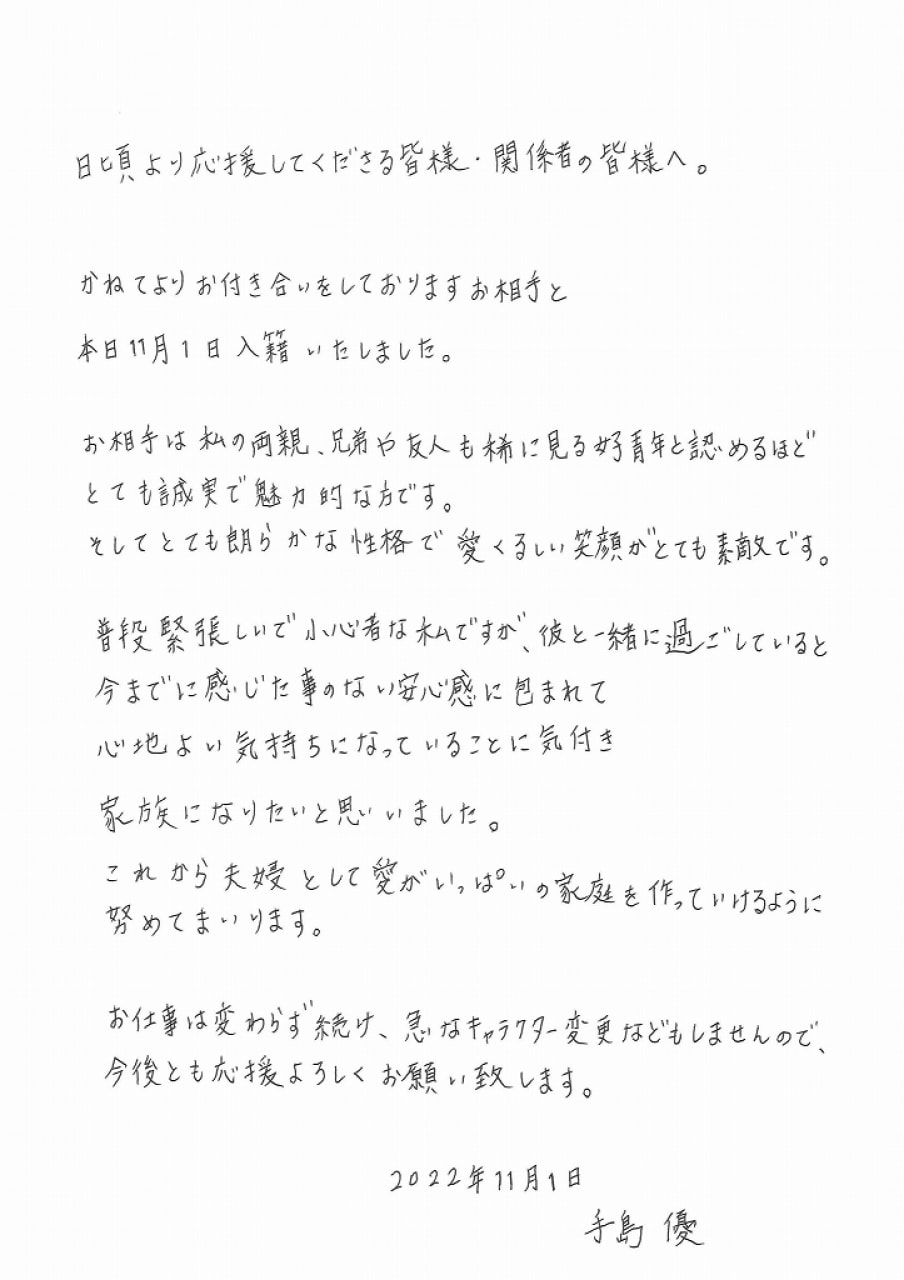 日頃より応援してくださる皆様・関係者の皆様へ。
かねてよりお付き合いをしておりますお相手と
本日11月1日入籍いたしました。
お相手は私の両親、兄弟や友人も稀に見る好青年と認めるほど
とても誠実で魅力的な方です。
そしてとても朗らかな性格で愛くるしい笑顔がとても素敵です。
普段緊張しいで小心者な私ですが、彼と一緒に過ごしていると
今までに感じた事のない安心感に包まれて
心地よい気持ちになっていることに気付き
家族になりたいと思いました。
これから夫婦として愛がいっぱいの家庭を作っていけるように
努めてまいります。
お仕事は変わらず続け、急なキャラクター変更などもしませんので、
今後とも応援よろしくお願い致します。
2022年11月1日
手島 優